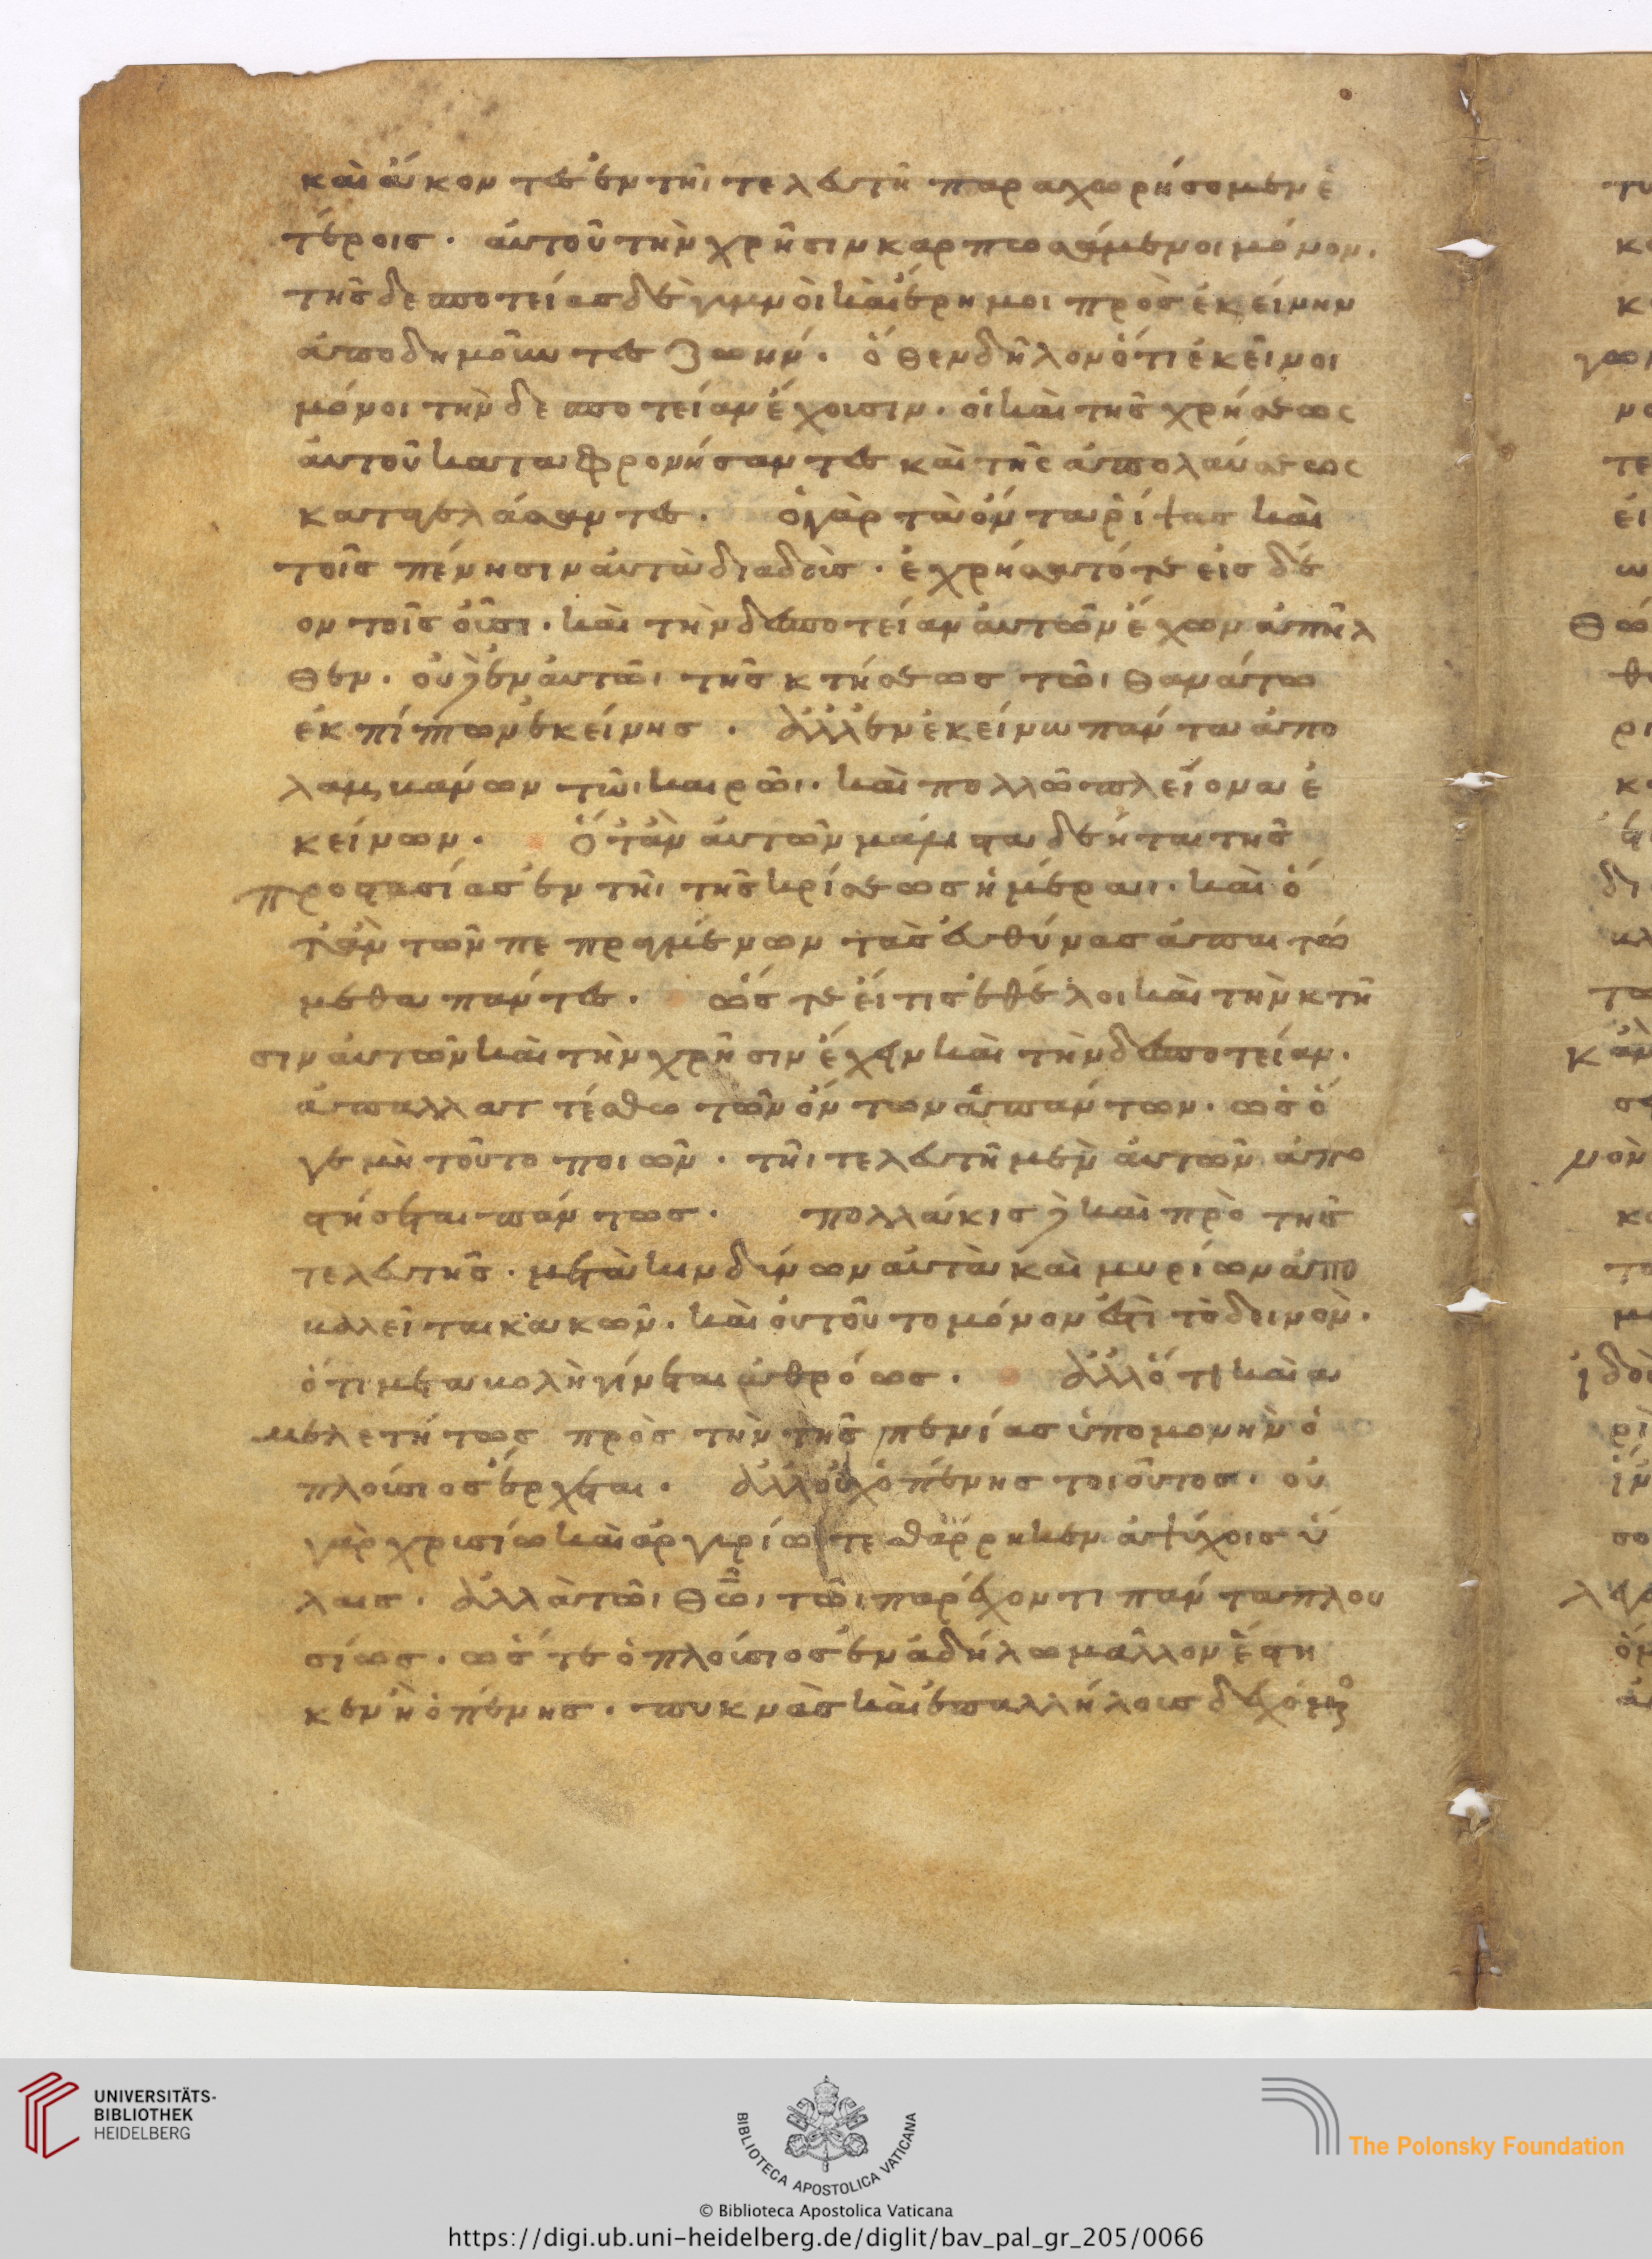 καὶ ἄκοντες ἐν τῆι τελευτῆ παραχωρήσομεν ἑ
τέροις. αὐτοῦ τὴν χρῆσιν καρπωσάμενοι μόνον.
τῆς δεσποτείας δὲ γυμνοὶ καὶ ἔρημοι πρὸς ἐκείνην
ἀποδημοῦντες ζωήν. ὅθεν δῆλον ὅτι ἐκεῖνοι
μόνοι τὴν δεσποτείαν ἔχουσιν. οἱ καὶ τῆς χρήσεως
αὐτοῦ καταφρονήσαντες καὶ τῆς ἀπολαύσεως
καταγελάσαντες. ὁ γὰρ τὰ ὄντα ῥίψας καὶ
τοῖς πένησιν αὐτὰ διαδοὺς. ἐχρήσατό τε εἰς δέ
ον τοῖς οὖσι. καὶ τὴν δεσποτείαν αὐτῶν ἔχων ἀπῆλ
θεν. οὐκ ἐν αὐτῶι τῆς κτήσεως τῶι θανάτω
ἐκπίπτων ἐκείνης. ἀλλ' ἐν ἐκείνω πάντα ἀπο
λαμβάνων τῶι καιρῶι. καὶ πολλῶ πλείονα ἐ
κείνων. ὅταν αὐτῶν μάλιστα δέηται τῆς
προστασίας ἐν τῆι τῆς κρίσεως ἡμέραι. καὶ ὅ
τε ἂν τῶν πεπραγμένων τὰς εὐθύνας ἀπαιτώ
μεθα πάντες. ὥστε εἴ τις ἐθέλοι καὶ τὴν κτῆ
σιν αὐτῶν καὶ τὴν χρῆσιν ἔχειν καὶ τὴν δεσποτείαν.
ἀπαλλαττέσθω τῶν ὄντων ἁπάντων. ὡς ὅ
γε μὴ τοῦτο ποιῶν. τῆι τελευτῆ μὲν αὐτῶν ἀπο
στήσεται πάντως. πολλάκις δὲ καὶ πρὸ τῆς
τελευτῆς. μετὰ κινδύνων αὐτὰ καὶ μυρίων ἀπο
βαλεῖται κακῶν. καὶ οὐ τοῦτο μόνον ἐστὶ τὸ δεινὸν.
ὅτι μεταβολὴ γίνεται ἀθρόως. ἀλλ' ὅτι καὶ ἀ
μελετήτως πρὸς τὴν τῆς πενίας ὑπομονὴν ὁ
πλούσιος ἔρχεται. ἀλλ' οὐχ ὁ πένης τοιοῦτος. οὐ
γὰρ χρυσίω καὶ ἀργυρίω τεθάρρηκεν ἀψύχοις ὕ
λαις. ἀλλὰ τῶι θῶ, τῶι παρέχοντι πάντα πλου
σίως. ὥστε ὁ πλούσιος ἐν ἀδήλω μᾶλλον ἕστη
κεν ἢ ὁ πένης. πυκνὰς καὶ ἐπαλλήλους δεχόμενος
UNIVERSITÄTS-
BIBLIOTHEK
HEIDELBERG
BIBLIOTECA APOSTOLICA VATICANA
The Polonsky Foundation
© Biblioteca Apostolica Vaticana
https://digi.ub.uni-heidelberg.de/diglit/bav_pal_gr_205/0066